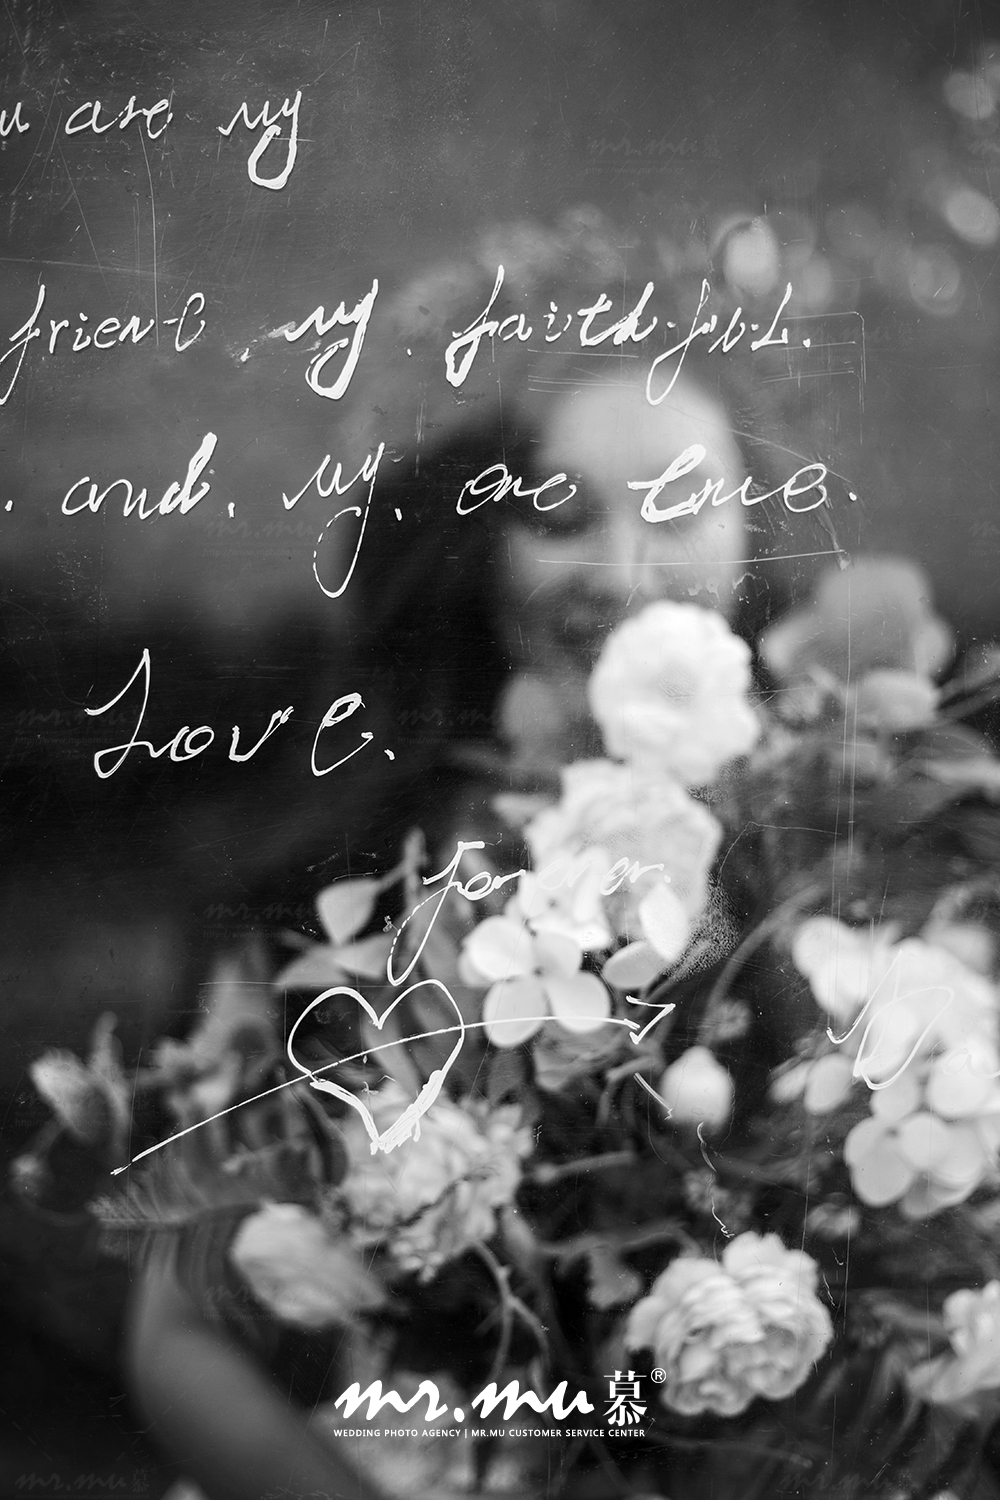 u are my
friend, my. faithful.
. and. my. one love.
Love.
forever.
mr.mu慕®
WEDDING PHOTO AGENCY | MR.MU CUSTOMER SERVICE CENTER